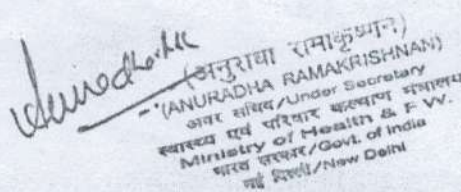 (अनुराधा रामाकृष्णन)
(ANURADHA RAMAKRISHNAN)
अवर सचिव/Under Secretary
स्वास्थ्य एवं परिवार कल्याण मंत्रालय
Ministry of Health & F.W.
भारत सरकार/Govt. of India
नई दिल्ली/New Delhi